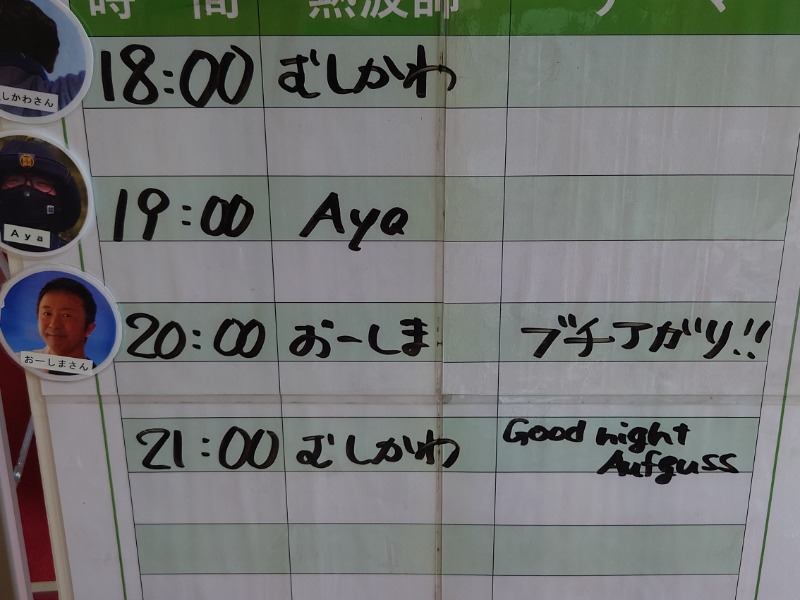 時間 熱波師 テーマ
18:00 むしかわ
19:00 Aya
20:00 おーしま ブチアガリ!!
21:00 むしかわ Good night
Aufguss
しかわさん
Aya
おーしまさん